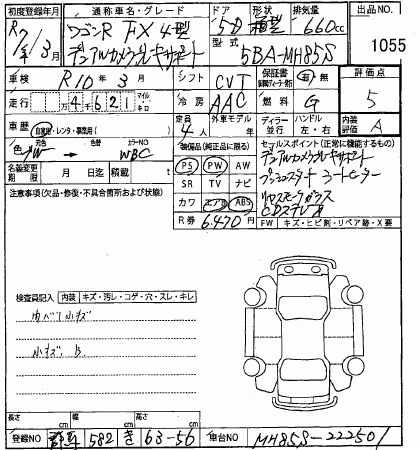 初度登録年月 通称車名・グレード ドア 形状 排気量 出品NO
R7年3月 ワゴンR FX 4型 5D 箱型 660cc 1055
デュアルカメラブレーキサポート 型式 5BA-MH85S
車検 R10年3月 シフト CVT 保証書 有・無 評価点
走行 4621 マイル キロ 冷房 AAC 燃料 G 5
車歴 自家用・レンタ・事業用( ) 定員 4人 外車モデル ディーラー 並行 ハンドル 左・右 内装評価 A
色 元色 W 色替 カラーNO WBC
装備品(純正品に限る) セールスポイント(正常に機能するもの)
名義変更期限 月 日迄 積載 t
PS PW AW
SR TV ナビ
カワ エアB ABS
R券 6,470円
デュアルカメラブレーキサポート
プッシュスタート シートヒーター
リヤスモークガラス
CDステレオ
FW キズ・ヒビ割・リペア跡・X要
注意事項(欠品・修復・不具合箇所および状態)
検査員記入 内装 キズ・汚レ・コゲ・穴・スレ・キレ
内ベリ小キズ
小キズ
長さ cm 幅 cm 高さ cm
登録NO 群馬 582 き 63-56 車台NO MH85S-222501